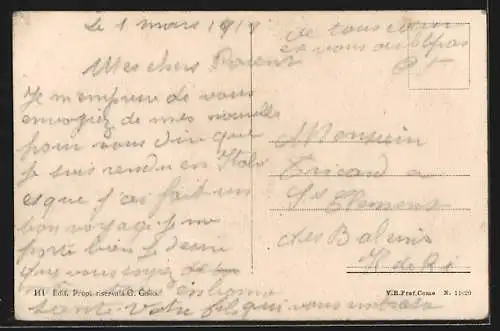 Le 1 mars 1919
Mes chers Parent
Je m'empresse de vous
envoyez de mes nouvelles
pour vous dire que
je suis rendu en Itali
es que j'ai fait un
bon voyage Je me
porte bien Je désire
que vous soyez de
en bonne
santé Votre fils qui vous embrasse
de tous cœur
et vous oubli pas
Monsieur
Tricard a
St Clement
des Baleines
I. de Ré
141 Ediz. Propr. riservata G.
V.R.Pref.Como N. 11929